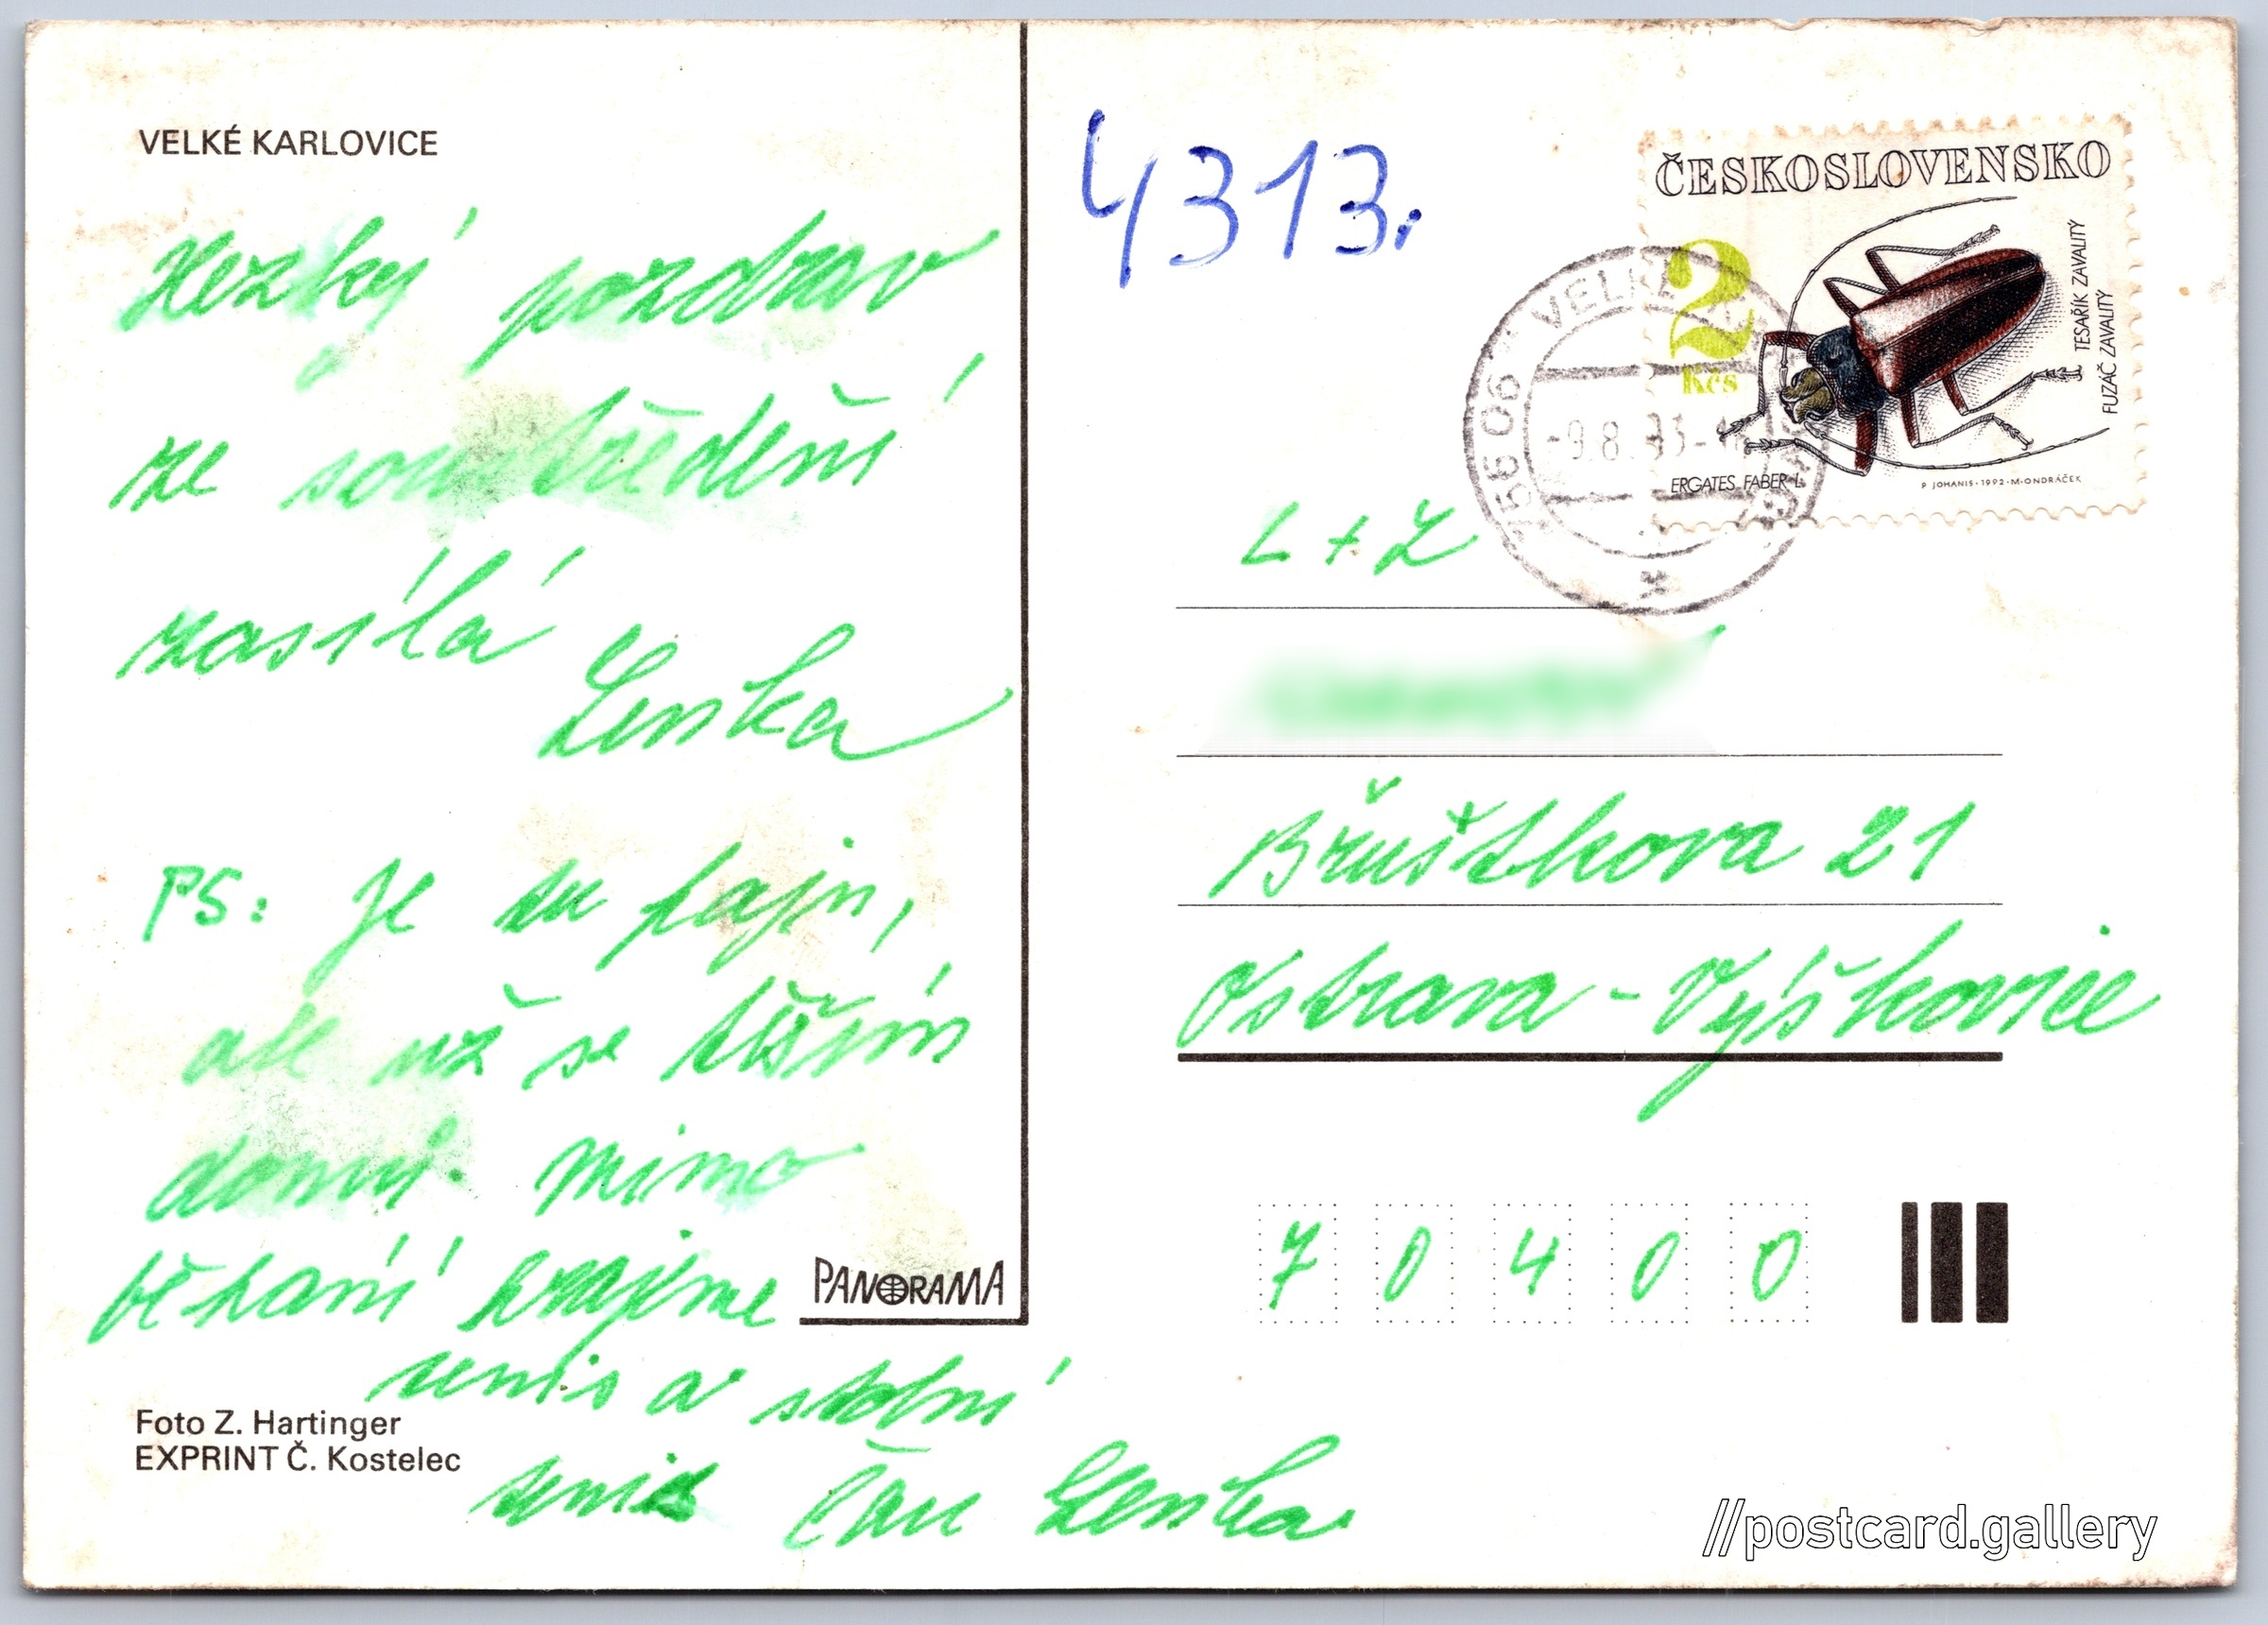 VELKÉ KARLOVICE
Hezký pozdrav
ze soustředění
zasílá
Lenka
PS: Je tu fajn,
ale už se těším
domů. Mimo
běhaní hrajeme
tenis a stolní
tenis Čau Lenka
PANORAMA
Foto Z. Hartinger
EXPRINT Č. Kostelec
4313.
ČESKOSLOVENSKO
2
Kčs
TESAŘÍK ZAVALITÝ
FUZÁČ ZAVALITÝ
ERGATES FABER L.
P. JOHANIS · 1992 · M. ONDRÁČEK
756 06 VELKÉ
-9.8.93-
L + Z
Břustkova 21
Ostrava - Výškovice
70400
//postcard.gallery